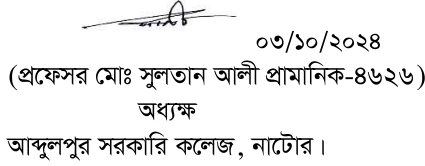 ০৩/১০/২০২৪
(প্রফেসর মোঃ সুলতান আলী প্রামানিক-৪৬২৬)
অধ্যক্ষ
আব্দুলপুর সরকারি কলেজ, নাটোর।